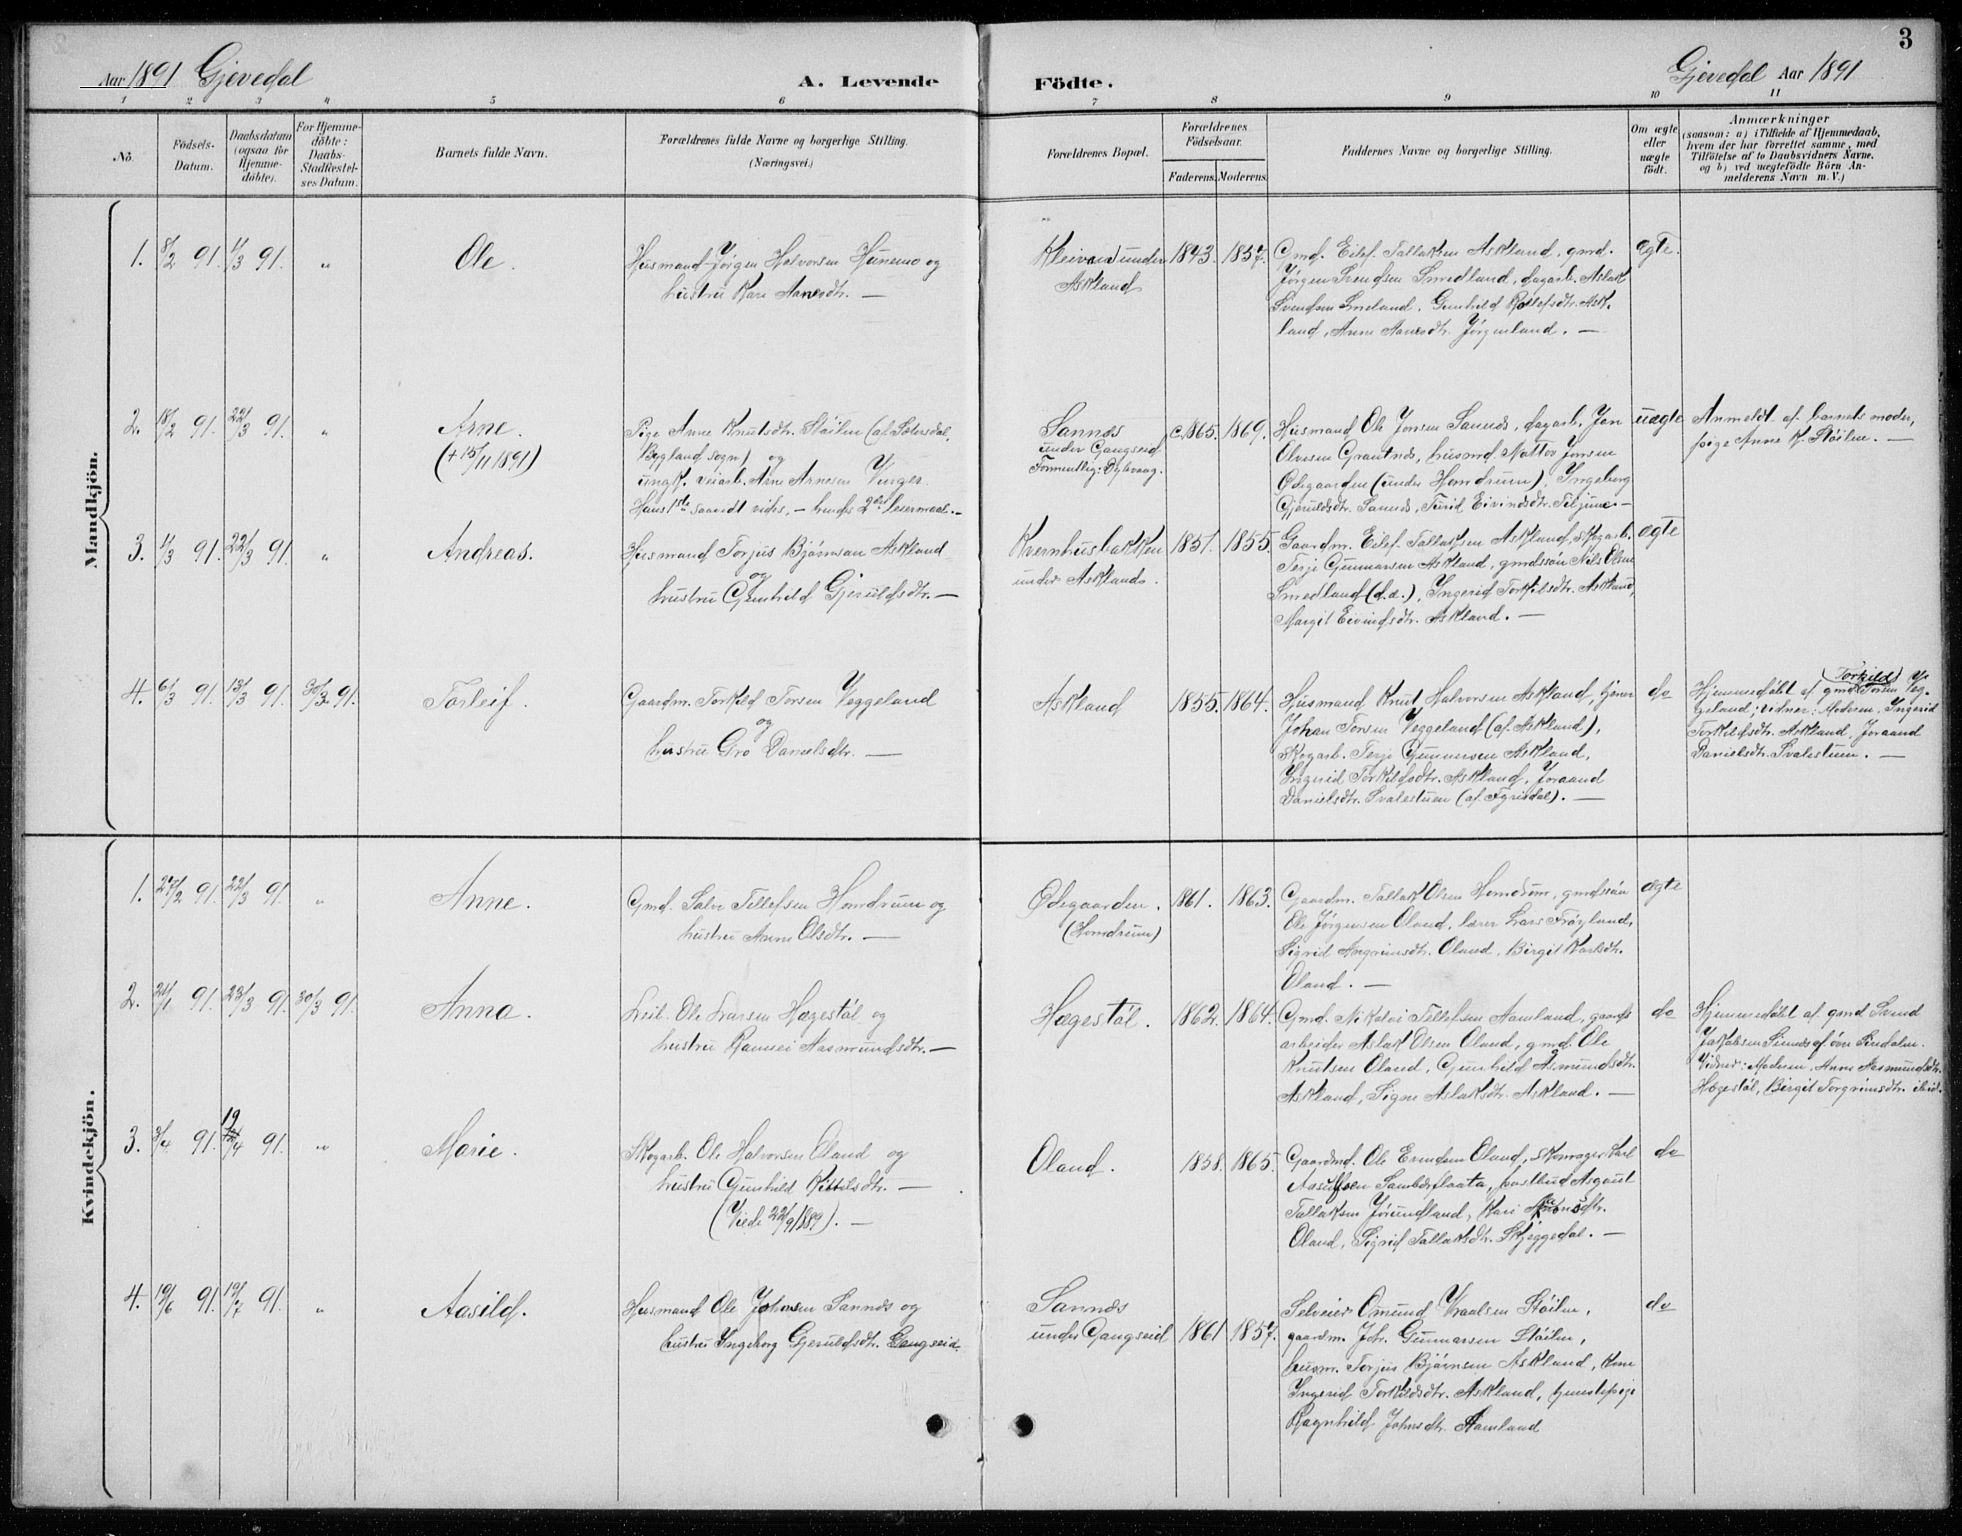 3
Aar 1891 Gjevedal
A. Levende Födte.
Gjevedal Aar 1891
1 2 3 4 5 6 7 8 9 10 11
No.
Födsels-Datum.
Daabsdatum (ogsaa for Hjemme-döbte).
For Hjemme-döbte: Daabs-Stadfæstel-ses Datum.
Barnets fulde Navn.
Forældrenes fulde Navne og borgerlige Stilling.
(Næringsvei.)
Forældrenes Bopæl.
Forældrenes Födselsaar.
Faderens. Moderens.
Faddernes Navne og borgerlige Stilling.
Om ægte eller uægte födt.
Anmærkninger
(saasom: a) i Tilfælde af Hjemmedaab,
hvem der har forrettet samme, med
Tilföielse af to Daabsvidners Navne,
og b) ved uægtefödte Börn An-
melderens Navn m. V.)
Mandkjön.
1. 8/2 91. 1/3 91. " Ole.
Husmand Jörgen Halvorsen Hunemo og
hustru Kari Aanesdtr. —
Kleivane under
Askland
1843. 1857.
Gmd. Eilef Tallaksen Askland, gmd.
Jörgen Svendsen Smedland, dagarb. Aslak
Svendsen Smeland, Gunhild Rollefsdtr. Ask-
land, Anne Aanesdtr. Jörgenland. —
ægte.
2. 18/2 91. 22/3 91. " Arne.
(+ 15/11 1891)
Pige Anne Knutsdtr. Stöilen (af Sætersdal,
Bygland sogn) og
ungk. veiarb. Arne Arnesen Vinger.
Hans 1ste saavidt vides, — hendes 2det leiermaal. —
Sannes
under Gangseid
Formentlig: Dybvaag.
c. 1865. 1869.
Husmand Ole Jonsen Sannes, dagarb. Jon
Olvesen Grautnes, husmd. Nattov Jonsen
Ödegaarden (under Homdrum), Ingeborg
Gjeruldsdtr. Sannes, Turid Eivindsdtr. —
uægte
Anmeldt af barnets moder,
pige Anne K. Stöilen. —
3. 1/3 91. 22/3 91. " Andreas.
Husmand Torjus Björnsen Askland
og
hustru Gunhild Gjeruldsdtr. —
Kvernhusbakken
under Askland.
1851. 1855.
Gaardm. Eilef Tallaksen Askland, skogarb.
Terje Gunnarsen Askland, gmdssön Nils Olsen
Smedland (d.æ.), Ingerid Torkilsdtr. Askland,
Margit Eivindsdtr. Askland. —
ægte
4. 6/3 91. 13/3 91. 30/3 91. Torleif.
Gaardm. Torkild Torsen Veggeland
og
hustru Gro Danielsdtr. —
Askland
1855. 1864.
Husmand Knut Halvorsen Askland, tjener
Johan Torsen Veggeland (af Askland),
skogarb. Terje Gunnarsen Askland,
Ingerid Torkildsdtr. Askland, Joraand
Danielsdtr. Svalestuen (af Fyrisdal). —
do
(Torkild)
Hjemmedöbt af gmd. Torsen Veg-
geland; vidner: Moderen, Ingerid
Torkildsdtr. Askland, Joraand
Danielsdtr. Svalestuen. —
Kvindekjön.
1. 27/2 91. 22/3 91. " Anne.
Gmd. Salve Tellefsen Homdrum og
hustru Anne Olsdtr. —
Ödegaarden.
(Homdrum)
1861. 1863.
Gaardm. Tallak Olsen Homdrum, gmdssön
Ole Jörgensen Oland, lærer Lars Fröyland,
Sigrid Angrimsdtr. Oland, Birgit Karlsdtr.
Oland. —
ægte
2. 24/1 91. 23/3 91. 30/3 91. Anna.
Leil. Ole Larsen Hægestöl og
hustru Ramnei Aasmundsdtr. —
Hægestöl.
1862. 1864.
Gmd. Nikolai Tellefsen Aamland, gaards
arbeider Aslak Olsen Oland, gmd. Ole
Knutsen Oland, Gunhild Asmundsdtr.
Askland, Signe Aslaksdtr. Askland. —
do
Hjemmedöbt af gmd Svend
Jakobsen
Vidner: Moderen, Anne Aasmundsdtr.
Hægestöl, Birgit Torgrimsdtr. ibid.
3. 3/4 91. 19/4 91. " Marie.
Skogarb. Ole Halvorsen Oland og
hustru Gunhild Kittilsdtr. —
(Viede 22/9 1889). —
Oland.
1858. 1865.
Gaardmd. Ole Evindsen Oland, skomager Karl
Aasulfsen Sambersflaata, postbud Asgaut
Tallaksen Jörundland, Kari
Oland, Sigrid Tallaksdtr. Skjeggedal. —
do
4. 19/6 91. 19/7 91. " Aasild.
Husmand Ole Johnsen Sannes og
hustru Ingeborg Gjeruldsdtr. Gangseid.
Sannes
under Gangseid
1861 1857.
Selveier Omund Kraalsen Stöilen,
gaardm. Joh. Gunnarsen Stöilen,
husm. Torjus Björnsen Askland, kone
Ingerid Torkildsdtr. Askland, tjenestepige
Ragnhild Johnsdtr. Aamland
do